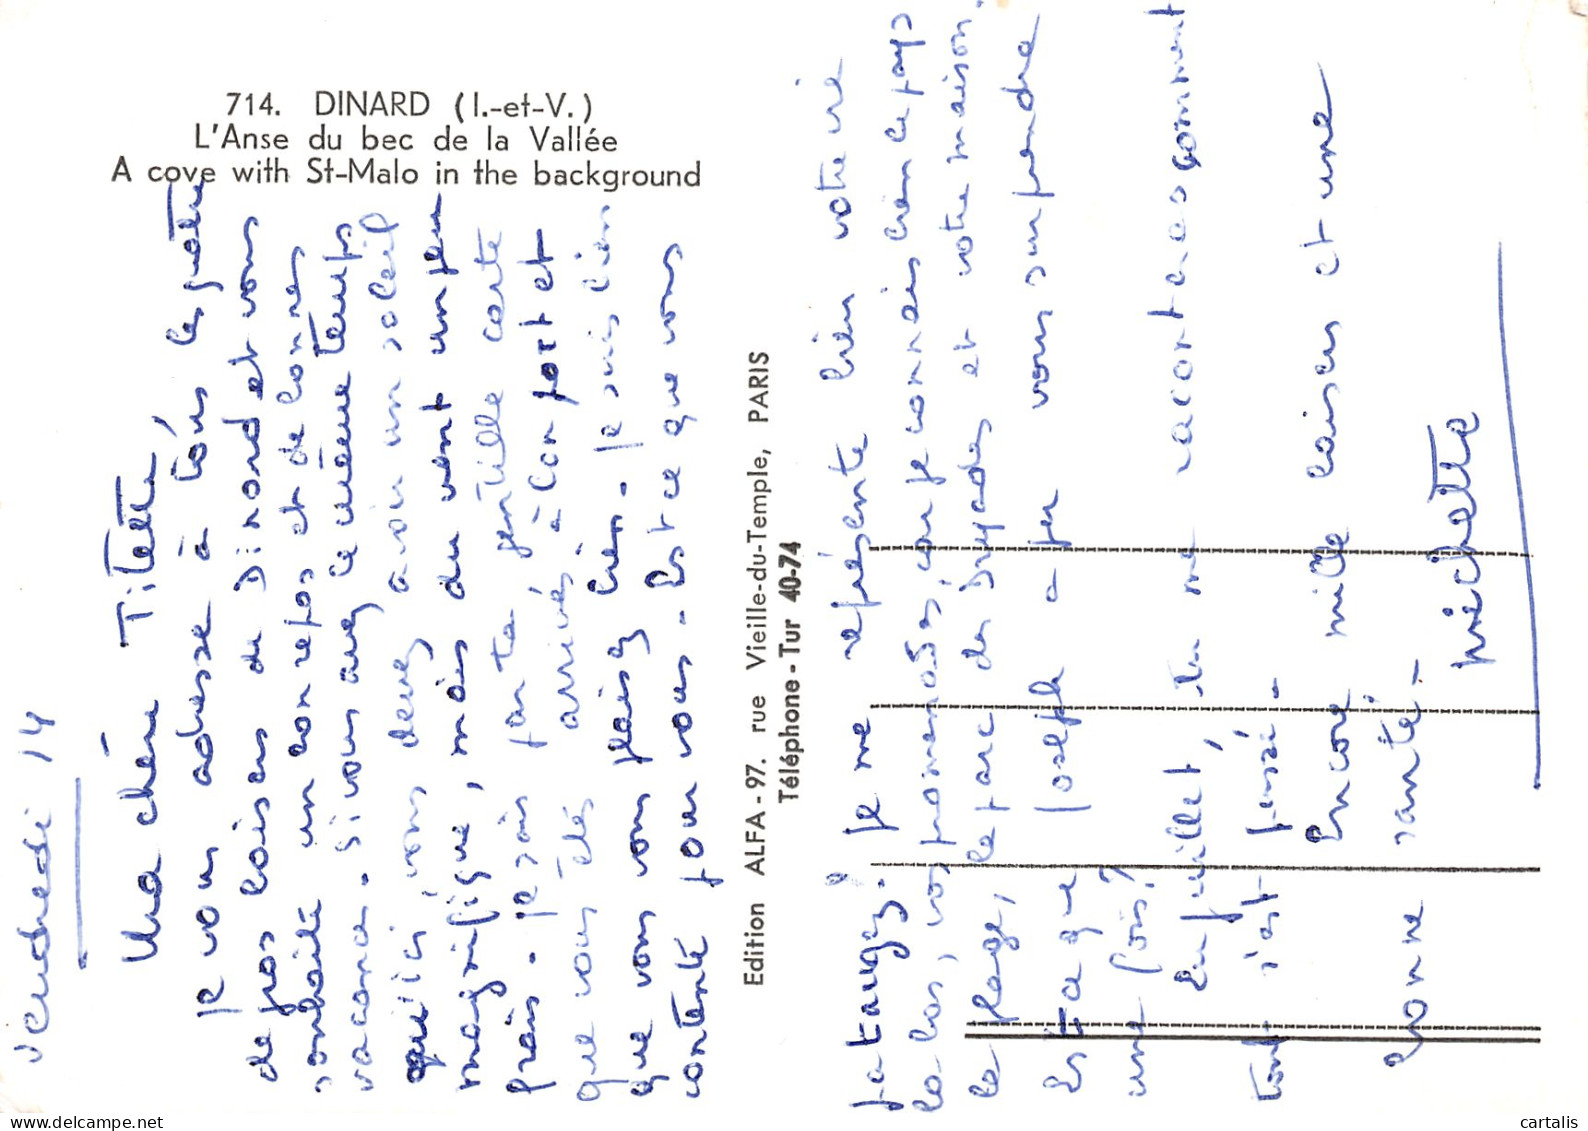 714. DINARD (I.-et-V.)
L'Anse du bec de la Vallée
A cove with St-Malo in the background
Edition ALFA - 97. rue Vieille-du-Temple, PARIS
Téléphone - Tur 40-74
vendredi 14
Ma chère Titette,
Je vous adresse à tous les quatre
de gros baisers de Dinard et vous
souhaite un bon repos et de bonnes
vacances. Si vous avez le même temps
qu'ici, vous devez avoir un soleil
magnifique, mais du vent un peu
frais. Je sais par ta gentille carte
que vous êtes arrivés à bon port et
que vous vous plaisez bien. Je suis bien
contente pour vous. Est ce que vous
pataugez? Je me représente bien votre vie
là bas, vos promenades, car je connais bien ce pays
la plage, le parc des Dryades et votre maison.
Est ce que Joseph a pu vous surprendre
une fois?
En juillet, tu me raconteras comment
tout s'est passé.
Encore mille baisers et une
bonne santé.
Michette
cartalis